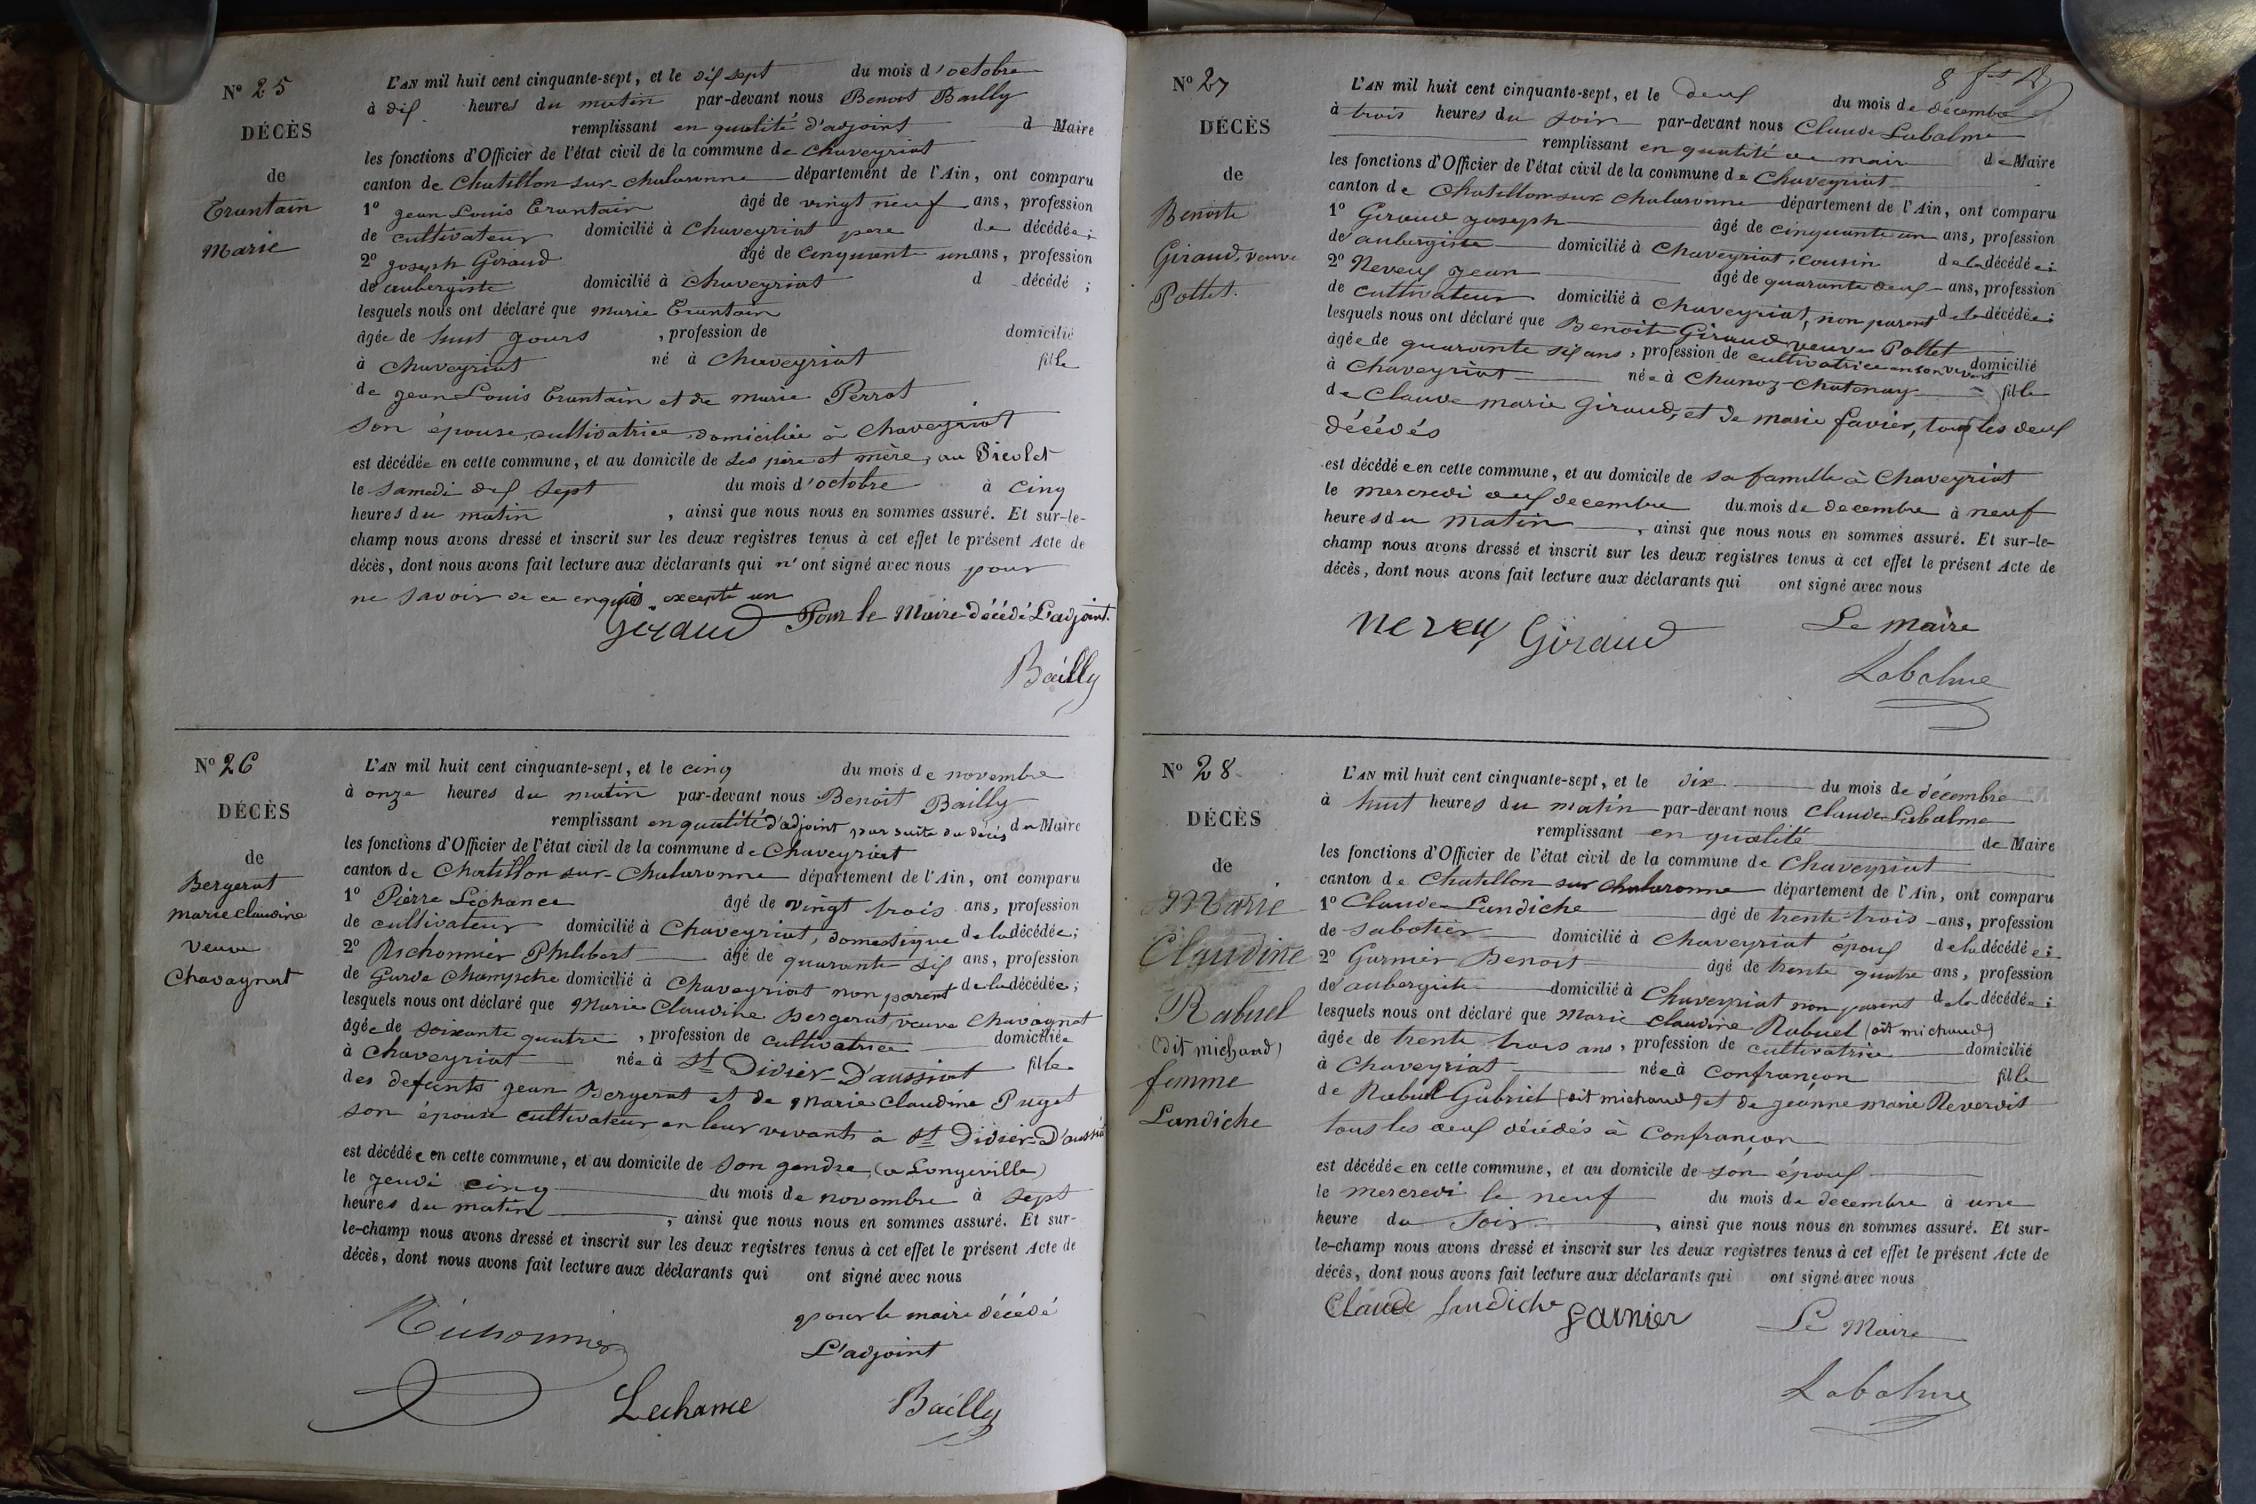 N° 25
DÉCÈS
de
Truntain
Marie
L'AN mil huit cent cinquante-sept, et le dix sept du mois d'octobre
à dix heures du matin par-devant nous Benoit Bailly
remplissant en qualité d'adjoint d Maire
les fonctions d'Officier de l'état civil de la commune de Chaveyriat
canton de Chatillon-sur-Chalaronne département de l'Ain, ont comparu
1° Jean Louis Truntain âgé de vingt neuf ans, profession
de cultivateur domicilié à Chaveyriat pere de décédée;
2° Joseph Giraud âgé de cinquant un ans, profession
de aubergiste domicilié à Chaveyriat d décédé ;
lesquels nous ont déclaré que Marie Truntain
âgée de huit jours , profession de domicilié
à Chaveyriat né à Chaveyriat fille
de Jean Louis Truntain et de Marie Perrat
son épouse, cultivatrice, domiciliée à Chaveyriat
est décédée en cette commune, et au domicile de ses père et mère, au Picolet
le samedi dix sept du mois d'octobre à cinq
heures du matin , ainsi que nous nous en sommes assuré. Et sur-le-
champ nous avons dressé et inscrit sur les deux registres tenus à cet effet le présent Acte de
décès, dont nous avons fait lecture aux déclarants qui n'ont signé avec nous pour
ne savoir de ce enquis excepté un
Giraud Pour le Maire décédé L'adjoint.
Bailly
N° 26
DÉCÈS
de
Bergerat
marie claudine
veuve
Chavagnat
L'AN mil huit cent cinquante-sept, et le cinq du mois de novembre
à onze heures du matin par-devant nous Benoit Bailly
remplissant en qualité d'adjoint par suite du décès du Maire
les fonctions d'Officier de l'état civil de la commune de Chaveyriat
canton de Chatillon-sur-Chalaronne département de l'Ain, ont comparu
1° Pierre Léchance âgé de vingt trois ans, profession
de cultivateur domicilié à Chaveyriat, domestique de la décédée;
2° Richonnier Philibert âgé de quarante six ans, profession
de Garde Champetre domicilié à Chaveyriat non parent de la décédée;
lesquels nous ont déclaré que Marie Claudine Bergerat, veuve Chavagnat
âgée de soixante quatre , profession de cultivatrice domiciliée
à Chaveyriat née à St Didier-D'aussiat fille
des defunts Jean Bergerat et de Marie Claudine Puget
son épouse cultivateur en leur vivants à St Didier-D'aussiat
est décédée en cette commune, et au domicile de son gendre (a Longeville)
le jeudi cinq du mois de novembre à sept
heures du matin , ainsi que nous nous en sommes assuré. Et sur-
le-champ nous avons dressé et inscrit sur les deux registres tenus à cet effet le présent Acte de
décès, dont nous avons fait lecture aux déclarants qui ont signé avec nous
Richonnier pour le maire décédé
L'adjoint
Lechance Bailly
8 
N° 27
DÉCÈS
de
Benoite
Giraud, veuve
Pottet.
L'AN mil huit cent cinquante-sept, et le deux du mois de décembre
à trois heures du soir par-devant nous Claude Labalme
remplissant en qualité de maire de Maire
les fonctions d'Officier de l'état civil de la commune de Chaveyriat
canton de Chatillon-sur-Chalaronne département de l'Ain, ont comparu
1° Giraud Joseph âgé de cinquante un ans, profession
de aubergiste domicilié à Chaveyriat, cousin de la décédée;
2° Neveux Jean âgé de quarante deux ans, profession
de cultivateur domicilié à Chaveyriat, non parent de la décédée;
lesquels nous ont déclaré que Benoite Giraud veuve Pottet
âgée de quarante six ans, profession de cultivatrice en son vivant domicilié
à Chaveyriat née à Chanoz-Chatenay fille
de Claude marie Giraud, et de Marie Favier, tous les deux
décédés
est décédée en cette commune, et au domicile de sa famille à Chaveyriat
le mercredi deux decembre du mois de decembre à neuf
heures du matin , ainsi que nous nous en sommes assuré. Et sur-le-
champ nous avons dressé et inscrit sur les deux registres tenus à cet effet le présent Acte de
décès, dont nous avons fait lecture aux déclarants qui ont signé avec nous
Neveux Giraud Le Maire
Labalme
N° 28
DÉCÈS
de
Marie
Claudine
Rabuel
(dit michaud)
femme
Landiche
L'AN mil huit cent cinquante-sept, et le dix du mois de décembre
à huit heures du matin par-devant nous Claude Labalme
remplissant en qualité de Maire
les fonctions d'Officier de l'état civil de la commune de Chaveyriat
canton de Chatillon sur Chalaronne département de l'Ain, ont comparu
1° Claude Landiche âgé de trente-trois ans, profession
de sabotier domicilié à Chaveyriat époux de la décédée;
2° Garnier Benoit âgé de trente quatre ans, profession
de aubergiste domicilié à Chaveyriat non parent de la décédée;
lesquels nous ont déclaré que Marie Claudine Rabuel (dit michaud)
âgée de trente trois ans, profession de cultivatrice domicilié
à Chaveyriat née à Confrançon fille
de Rabuel Gabriel (dit michaud) et de Jeanne marie Reverdit
tous les deux décédés à Confrançon
est décédée en cette commune, et au domicile de son époux
le mercredi le neuf du mois de decembre à une
heure du soir , ainsi que nous nous en sommes assuré. Et sur-
le-champ nous avons dressé et inscrit sur les deux registres tenus à cet effet le présent Acte de
décès, dont nous avons fait lecture aux déclarants qui ont signé avec nous
Claude Landiche Garnier Le Maire
Labalme